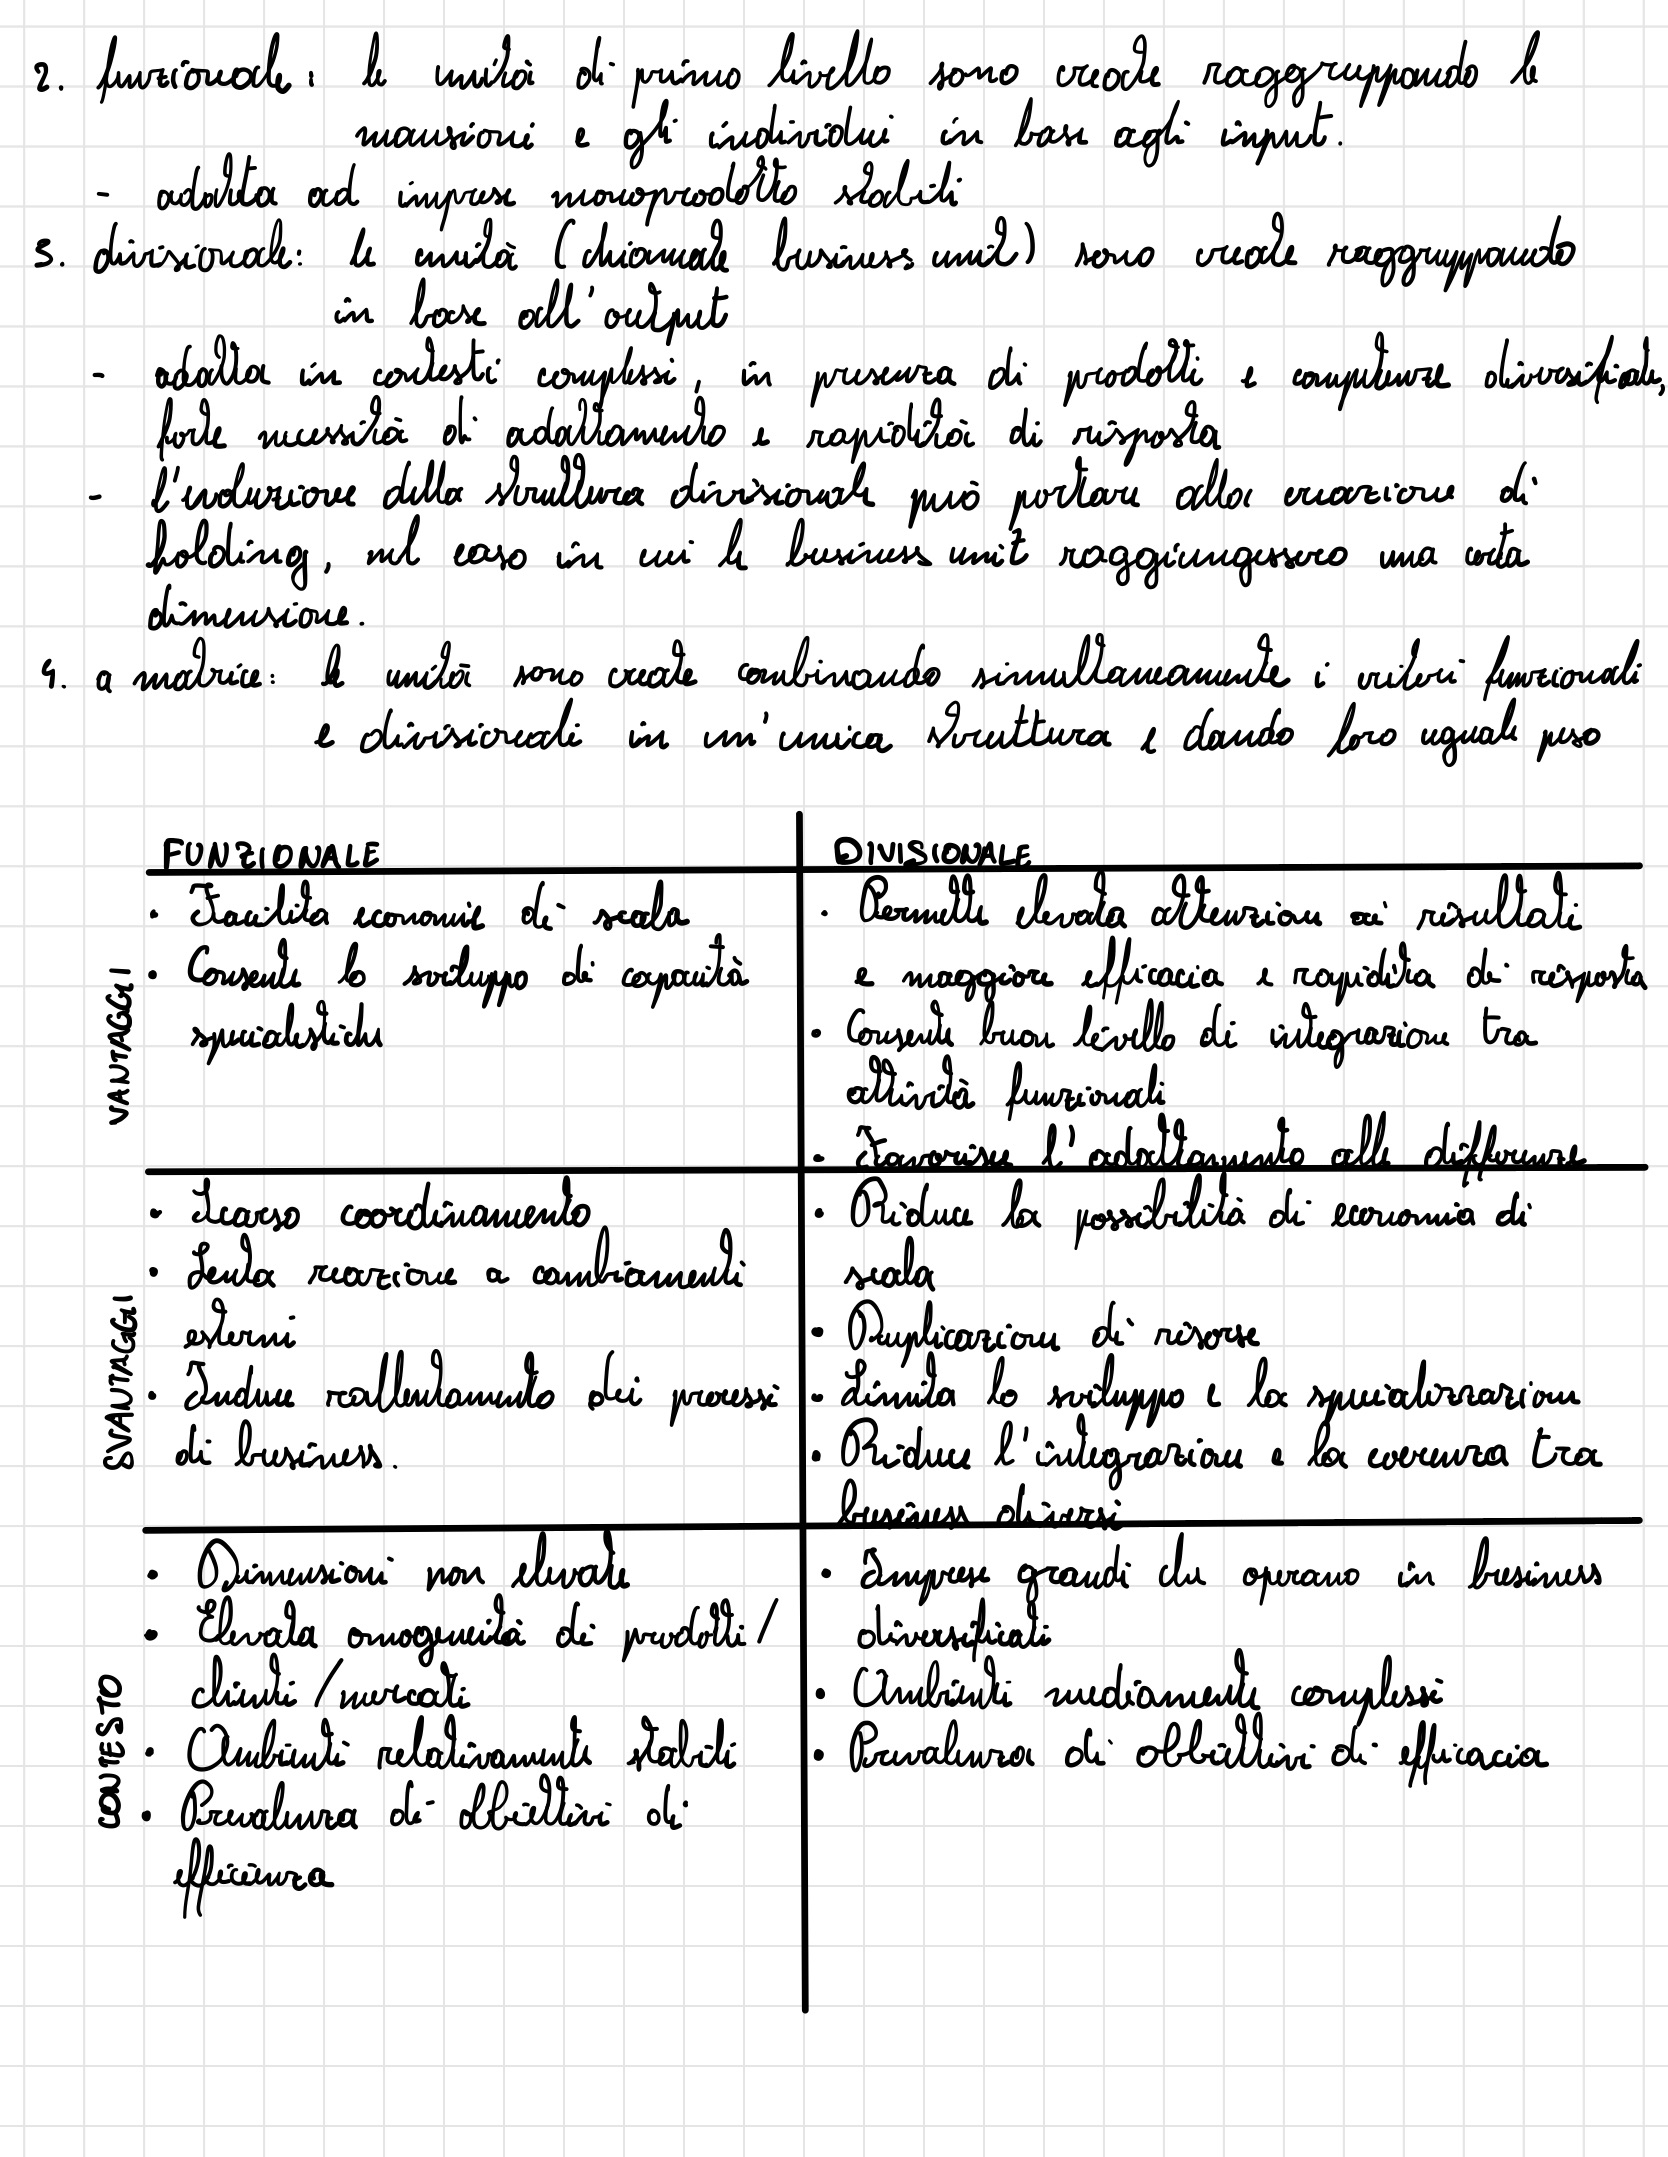 2. funzionale: le unità di primo livello sono create raggruppando le
mansioni e gli individui in base agli input.
- adatta ad imprese monoprodotto stabili
3. divisionale: le unità (chiamate business unit) sono create raggruppando
in base all'output
- adatta in contesti complessi, in presenza di prodotti e competenze diversificate,
forte necessità di adattamento e rapidità di risposta
- l'evoluzione della struttura divisionale può portare alla creazione di
holding, nel caso in cui le business unit raggiungessero una certa
dimensione.
4. a matrice: le unità sono create combinando simultaneamente i criteri funzionali
e divisionali in un'unica struttura e dando loro uguale peso
FUNZIONALE
DIVISIONALE
VANTAGGI
• Facilita economie di scala
• Consente lo sviluppo di capacità
specialistiche
• Permette elevata attenzione ai risultati
e maggiore efficacia e rapidità di risposta
• Consente buon livello di integrazione tra
attività funzionali
• Favorisce l'adattamento alle differenze
SVANTAGGI
• Scarso coordinamento
• Lenta reazione a cambiamenti
esterni
• Induce rallentamento dei processi
di business.
• Riduce la possibilità di economia di
scala
• Duplicazione di risorse
• Limita lo sviluppo e la specializzazione
• Riduce l'integrazione e la coerenza tra
business diversi
CONTESTO
• Dimensioni non elevate
• Elevata omogeneità di prodotti/
clienti/mercati
• Ambienti relativamente stabili
• Prevalenza di obbiettivi di
efficienza
• Imprese grandi che operano in business
diversificati
• Ambienti mediamente complessi
• Prevalenza di obbiettivi di efficacia